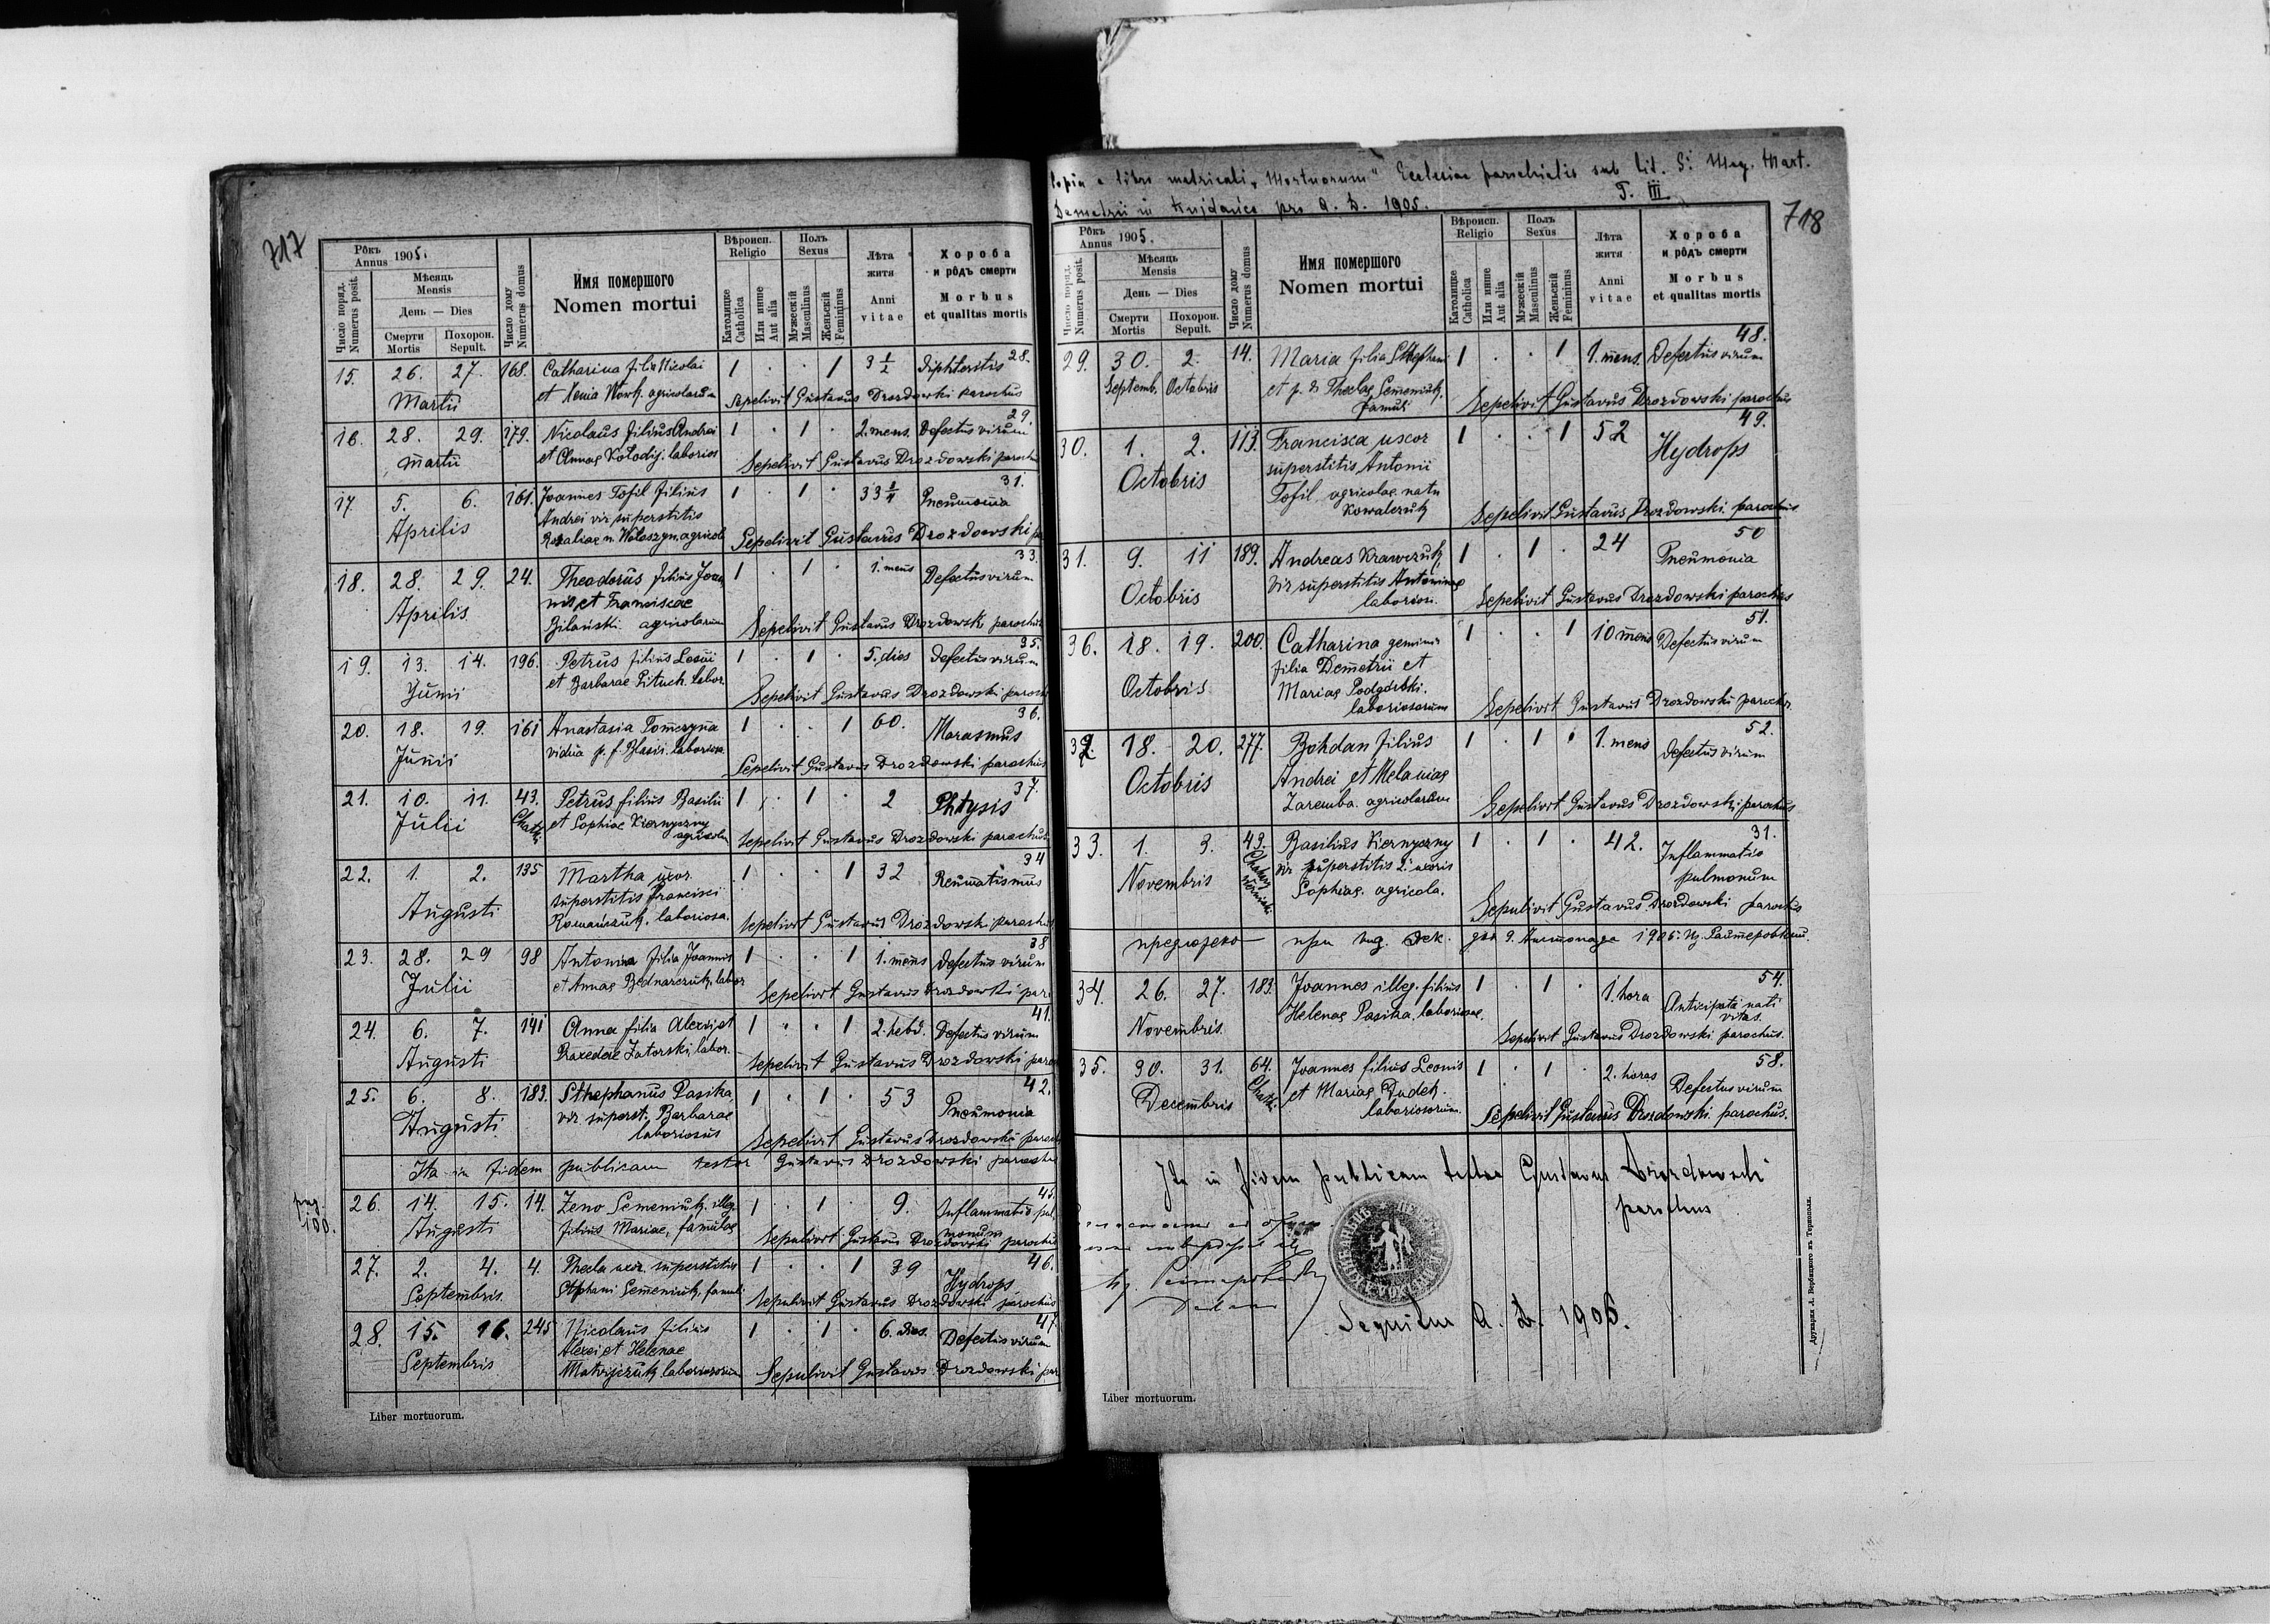 717
Рôкъ
Annus 1905.
Число поряд.
Numerus posit.
Мѣсяць
Mensis
День — Dies
Смерти
Mortis
Похорон.
Sepult.
Число дому
Numerus domus
Имя помершого
Nomen mortui
Вѣроисп.
Religio
Католицке
Catholica
Или инше
Aut alia
Полъ
Sexus
Мужескій
Masculinus
Женьскій
Femininus
Лѣта
житя
Anni
vitae
Хороба
и рôдъ смерти
Morbus
et qualitas mortis
28.
15. 26. 27. 168. Catharina filia Nicolai 1 . . 1 3 1/2 Diphteritis
Martii et Xenia agricolarum Sepelivit Gustavus Drozdowski parochus
29.
16. 28. 29. 179. Nicolaus filius Andrei 1 . 1 . 2. mens. Defectus virium
Martii et Annae Kołodij. laborios Sepelivit Gustavus Drozdowski paroch
31.
17. 5. 6. 161. Joannes Tofil filius 1 . 1 . 33 Pneumonia
Aprilis Andrei vir superstitis
Rozaliae n. Wołoszyn. agricol Sepelivit Gustavus Drozdowski pa
33.
18. 28. 29. 24. Theodorus filius Joan 1 . 1 . 1. mens Defectus virium
Aprilis nis et Franciscae
Bilański agricolarum Sepelivit Gustavus Drozdowski parochus
35.
19. 13. 14. 196. Petrus filius 1 . 1 . 5. dies Defectus virium
Junii et Barbarae Pituch. labor. Sepelivit Gustavus Drozdowski paroch
36.
20. 18. 19. 161 Anastasia 1 . . 1 60. Marasmus
Junii vidua p. f. Blasii. laboriosa Sepelivit Gustavus Drozdowski parochus
37.
21. 10. 11. 43. Petrus filius Basilii 1 . 1 . 2 Phtysis
Julii Chatk. et Sophiae Kiernyczny
agricola Sepelivit Gustavus Drozdowski parochus
34
22. 1. 2. 135 Martha uxor 1 . . 1 32 Reumatismus
Augusti superstitis Francisci
Romańczuk. laboriosa. Sepelivit Gustavus Drozdowski parochus
38
23. 28. 29 98 Antonina filia Joannis 1 . . 1 1. mens Defectus virium
Julii et Annae Bednarczuk, labor Sepelivit Gustavus Drozdowski par
41.
24. 6. 7. 141 Anna filia Alexii et 1 . . 1 2. hebd. Defectus virium
Augusti Praxedae Zatorski, labor. Sepelivit Gustavus Drozdowski paro
42.
25. 6. 8. 183. Sthephanus Pasika, 1 . 1 . 53 Pneumonia
Augusti. vir superst. Barbarae
laboriosus Sepelivit Gustavus Drozdowski paroch
Ita in fidem publicam testor Gustavus Drozdowski parochus
pag. 100.
45.
26. 14. 15. 14. Zeno Semeniuk. illeg. 1 . 1 . 9. Inflammatio pul
Augusti filius Mariae, famulae monum
Sepulivit Gustavus Drozdowski parochus
46.
27. 2. 4. 4. Thecla uxor superstitis 1 . . 1 39 Hydrops
Septembris. Stphani Semeniuk, famuli Sepulivit Gustavus Drozdowski parochus
47.
28. 15. 16. 245 Nicolaus filius 1 . 1 . 6. dies. Defectus virium
Septembris Alexei et Helenae
Matvijczuk, laboriosorum Sepulivit Gustavus Drozdowski par
Liber mortuorum.
Copia e libro metricali „Mortuorum" Ecclesiae parochialis sub tit. S. Meg. Mart.
Demetrii in pro A. D. 1905. T. III
718
Рôкъ
Annus 1905.
Число поряд.
Numerus posit.
Мѣсяць
Mensis
День — Dies
Смерти
Mortis
Похорон.
Sepult.
Число дому
Numerus domus
Имя помершого
Nomen mortui
Вѣроисп.
Religio
Католицке
Catholica
Или инше
Aut alia
Полъ
Sexus
Мужескій
Masculinus
Женьскій
Femininus
Лѣта
житя
Anni
vitae
Хороба
и рôдъ смерти
Morbus
et qualitas mortis
48.
29. 30. 2. 14. Maria filia Sthephani 1 . . 1 1. mens. Defectus virium
Septemb. Octobris et p. d. Theclae Semeniuk.
famuli Sepelivit Gustavus Drozdowski parochus
49.
30. 1. 2. 113. Francisca uxor 1 . . 1 52 Hydrops
Octobris superstitis Antonii
Tofil agricolae natu
Kowalczuk Sepelivit Gustavus Drozdowski parochus
50
31. 9. 11 189. Andreas Krawczuk, 1 . 1 . 24 Pneumonia
Octobris vir superstitis Antoninae
laborios. Sepelivit Gustavus Drozdowski parochus
51.
36. 18. 19. 200. Catharina gemina 1 . . 1 10 mens Defectus virium
Octobris filia Demetrii et
Mariae Podgórski.
laboriosorum Sepelivit Gustavus Drozdowski paroch.
52.
32. 18. 20. 277. Bohdan filius 1 . 1 . 1. mens Defectus virium
Octobris Andrei et Melaniae
Zaremba. agricolarum Sepelivit Gustavus Drozdowski parochus
31.
33. 1. 3. 43. Basilius Kiernyczny 1 . 1 . 42. Inflammatio
Novembris vir superstitis 2. uxoris pulmonum
Sophiae. agricola. Sepulivit Gustavus Drozdowski parochus
предложено при дек. дня 9. Листопада 1905.
54.
34. 26. 27. 183. Joannes illeg. filius 1 . 1 . 1. hora Anticipata nati
Novembris. Helenae Pasika, laboriosae. vitas.
Sepelivit Gustavus Drozdowski parochus.
58.
35. 30. 31. 64. Joannes filius Leonis 1 . 1 . 2. horas Defectus virium
Decembris Chatk. et Mariae Dudek.
laboriosorum. Sepelivit Gustavus Drozdowski parochus.
Ita in fidem publicam testor Gustavus Drozdowski
parochus
Sequitur A. D. 1906.
Liber mortuorum.
Друкарня Л. Вербицкого въ Тернополи.